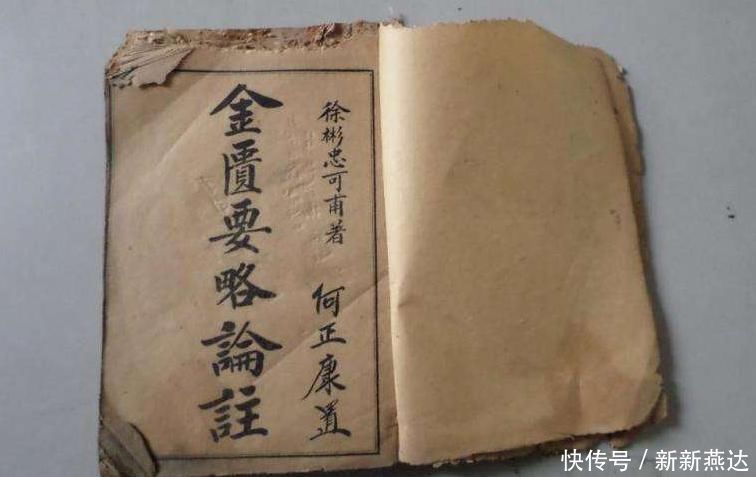 徐彬忠可甫著
金匱要略論註
何正康置
快传号/新新燕达